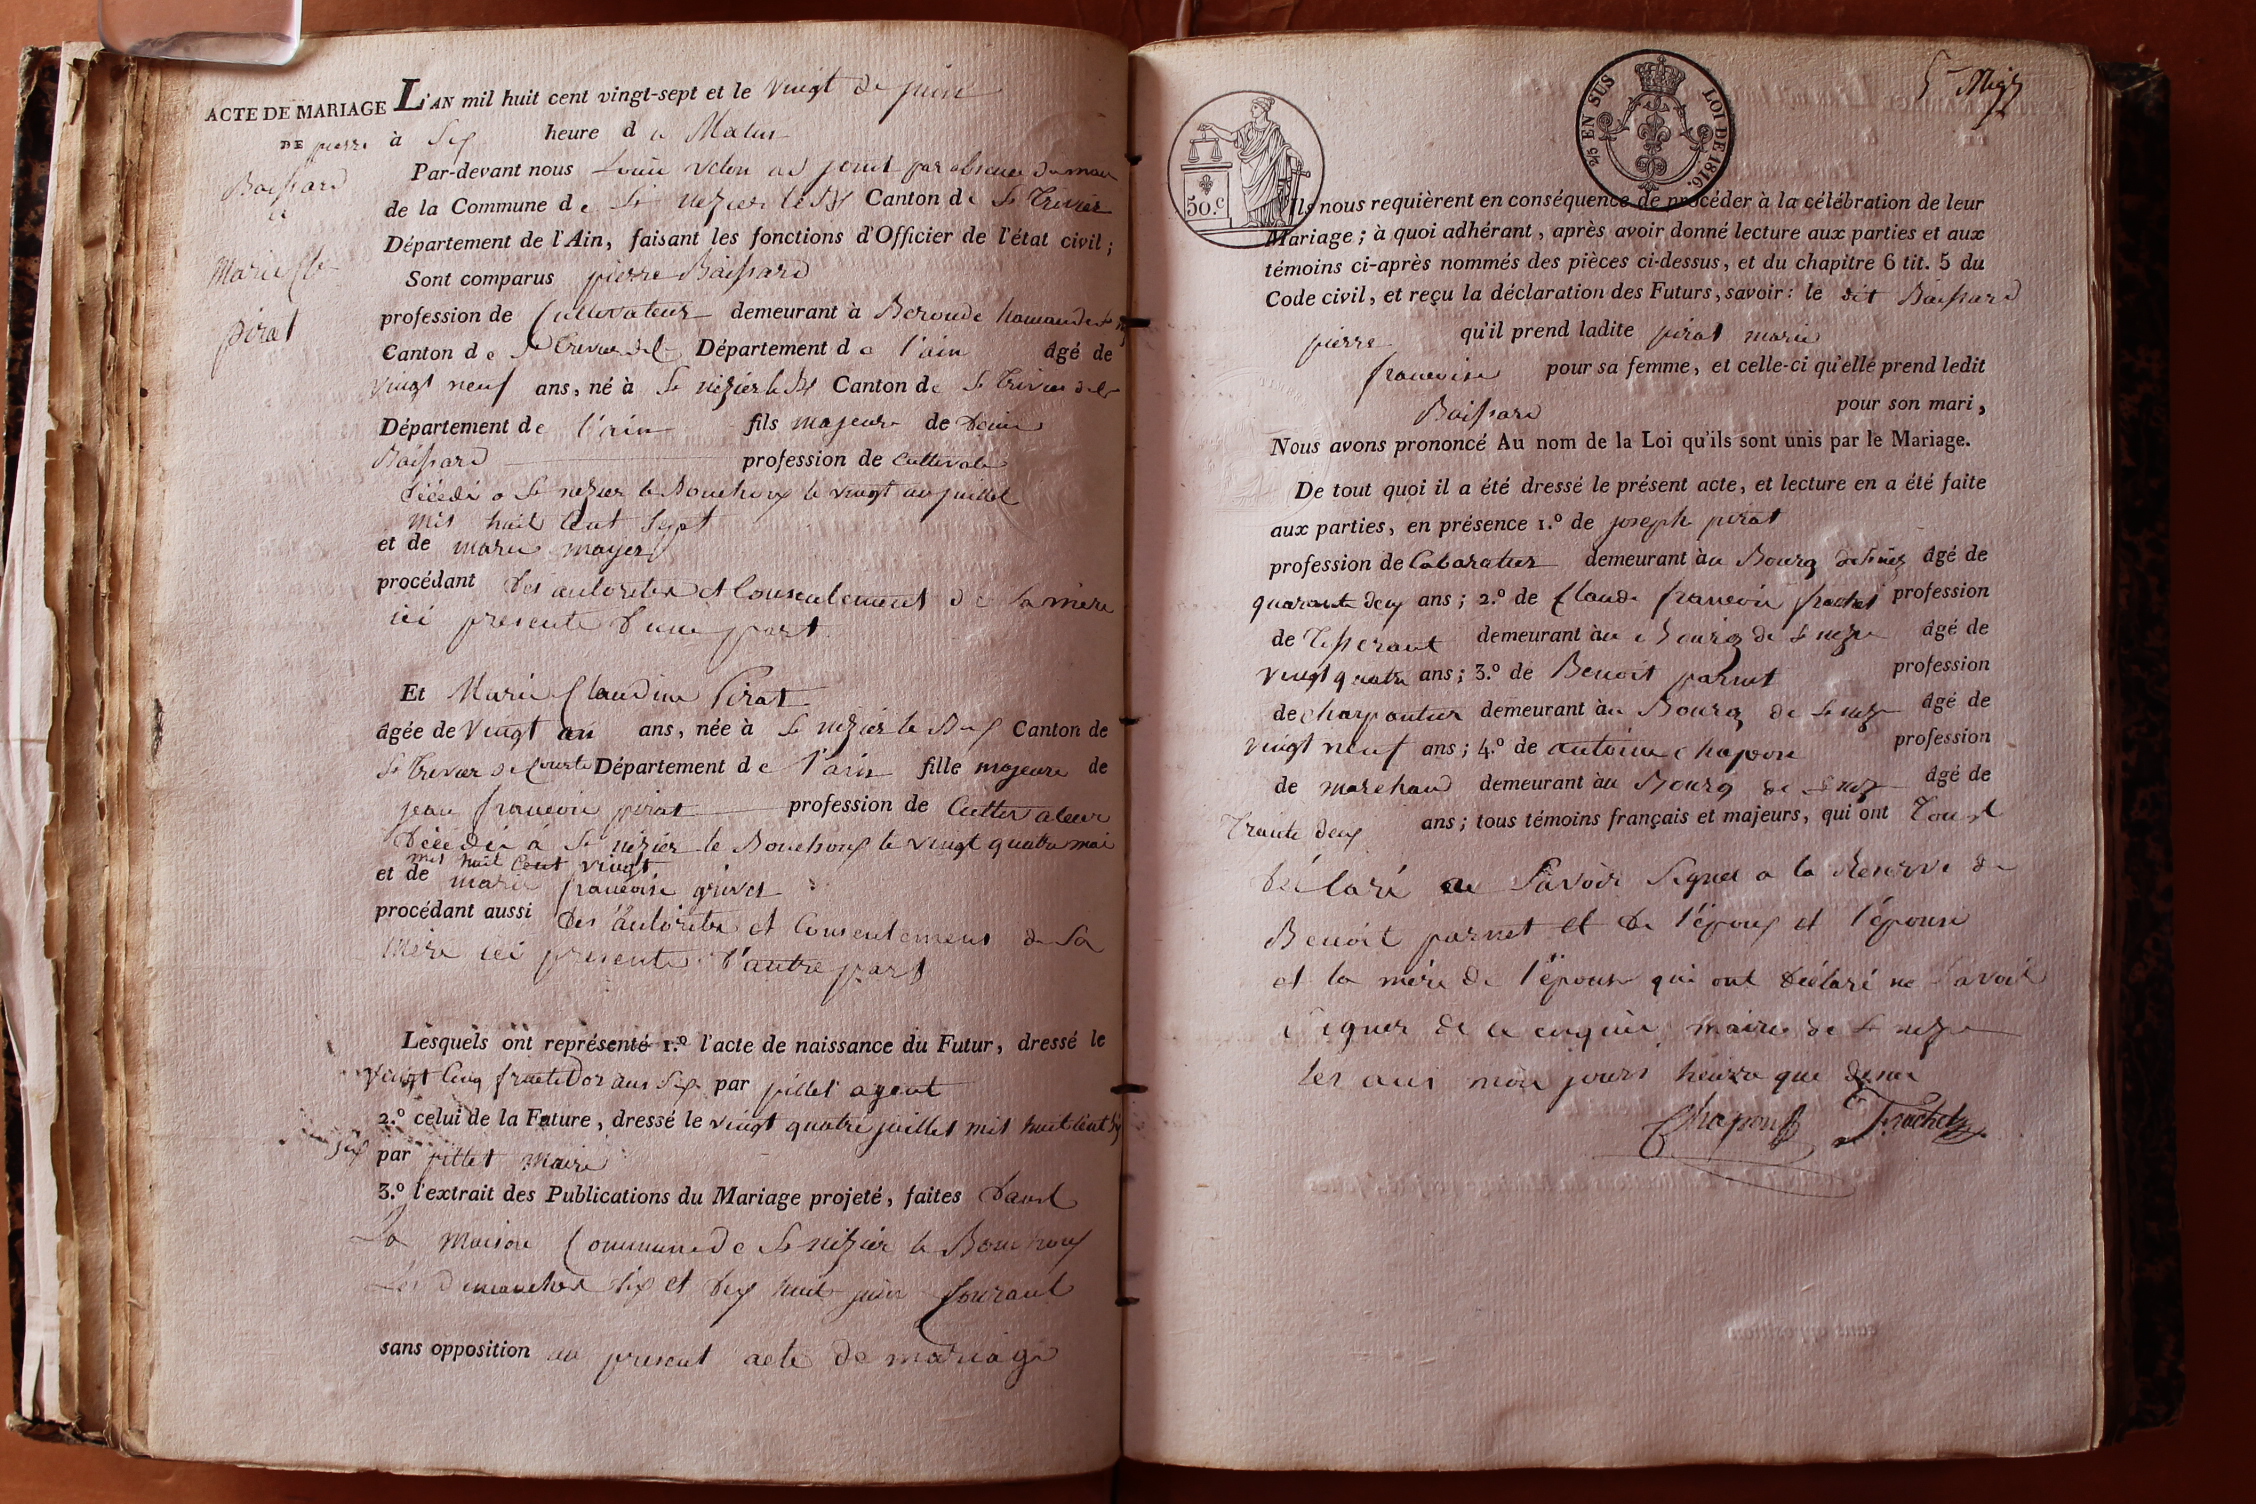 ACTE DE MARIAGE L'AN mil huit cent vingt-sept et le vingt de juin
DE pierre à Six heure du Matin
Boissard
et
Marie Cl^de
pirat
Par-devant nous Louis Velon adjoint par absence du maire
de la Commune de St nizier le Bx Canton de St Trivier
Département de l'Ain, faisant les fonctions d'Officier de l'état civil;
Sont comparus pierre Boissard
profession de Cultivateur demeurant à hamaude
Canton de St Trivier de C^te Département de l'ain âgé de
vingt neuf ans, né à St nizier le Bx Canton de St Trivier de C^te
Département de l'ain fils majeure de Denis
Boissard profession de Cultivate
décédé a St nizier le Bouchoux le vingt un juillet
mil huit Cent Sept
et de marie mayer
procédant des autorités et Consentement de Sa mère
ici presente d'une part
Et Marie Claudine Pirat
âgée de Vingt un ans, née à St nizier le Bx Canton de
St Trivier de Courte Département de l'ain fille majeure de
jean francois pirat profession de Cultivateur
Décédé à St nizier le Bouchoux le vingt quatre mai
mil huit Cent vingt
et de marie francoise grivet
procédant aussi Des autorités et Consentement de Sa
mère ici presente d'autre part
Lesquels ont représenté 1.º l'acte de naissance du Futur, dressé le
vingt Cinq fructidor ans Six par pillet agent
2.º celui de la Future, dressé le vingt quatre juillet mil huit Cent
Six par pillet maire
3.º l'extrait des Publications du Mariage projeté, faites Devant
La maison Commune de St nizier le Bouchoux
Les dimanches dix et dix huit juin Courant
sans opposition au present acte de mariage
5
50.c
25 EN SUS LOI DE 1816.
Ils nous requièrent en conséquence de procéder à la célébration de leur
Mariage; à quoi adhérant, après avoir donné lecture aux parties et aux
témoins ci-après nommés des pièces ci-dessus, et du chapitre 6 tit. 5 du
Code civil, et reçu la déclaration des Futurs, savoir: le dit Boissard
pierre qu'il prend ladite pirat marie
francoise pour sa femme, et celle-ci qu'elle prend ledit
Boissard pour son mari,
Nous avons prononcé Au nom de la Loi qu'ils sont unis par le Mariage.
De tout quoi il a été dressé le présent acte, et lecture en a été faite
aux parties, en présence 1.º de joseph pirat
profession de Cabaratier demeurant àu Bourg de St niz âgé de
quarante deux ans; 2.º de Claude francois frachet profession
de Tisserant demeurant àu Bourg de St nizie âgé de
vingt quatre ans; 3.º de Benoit parnet profession
de charpantier demeurant àu Bourg de St niz âgé de
vingt neuf ans; 4.º de antoine chapon profession
de marchand demeurant àu Bourg de St niz âgé de
Trante deux ans; tous témoins français et majeurs, qui ont Tous
déclaré Savoir Signer a la Reserve de
Benoit parnet et de l'époux et l'épouse
et la mère de l'épouse qui ont déclaré ne Savoir
Signer de ce enquis mairie de St nizie
les ans mois jours heure que desus
Chapon Frachet